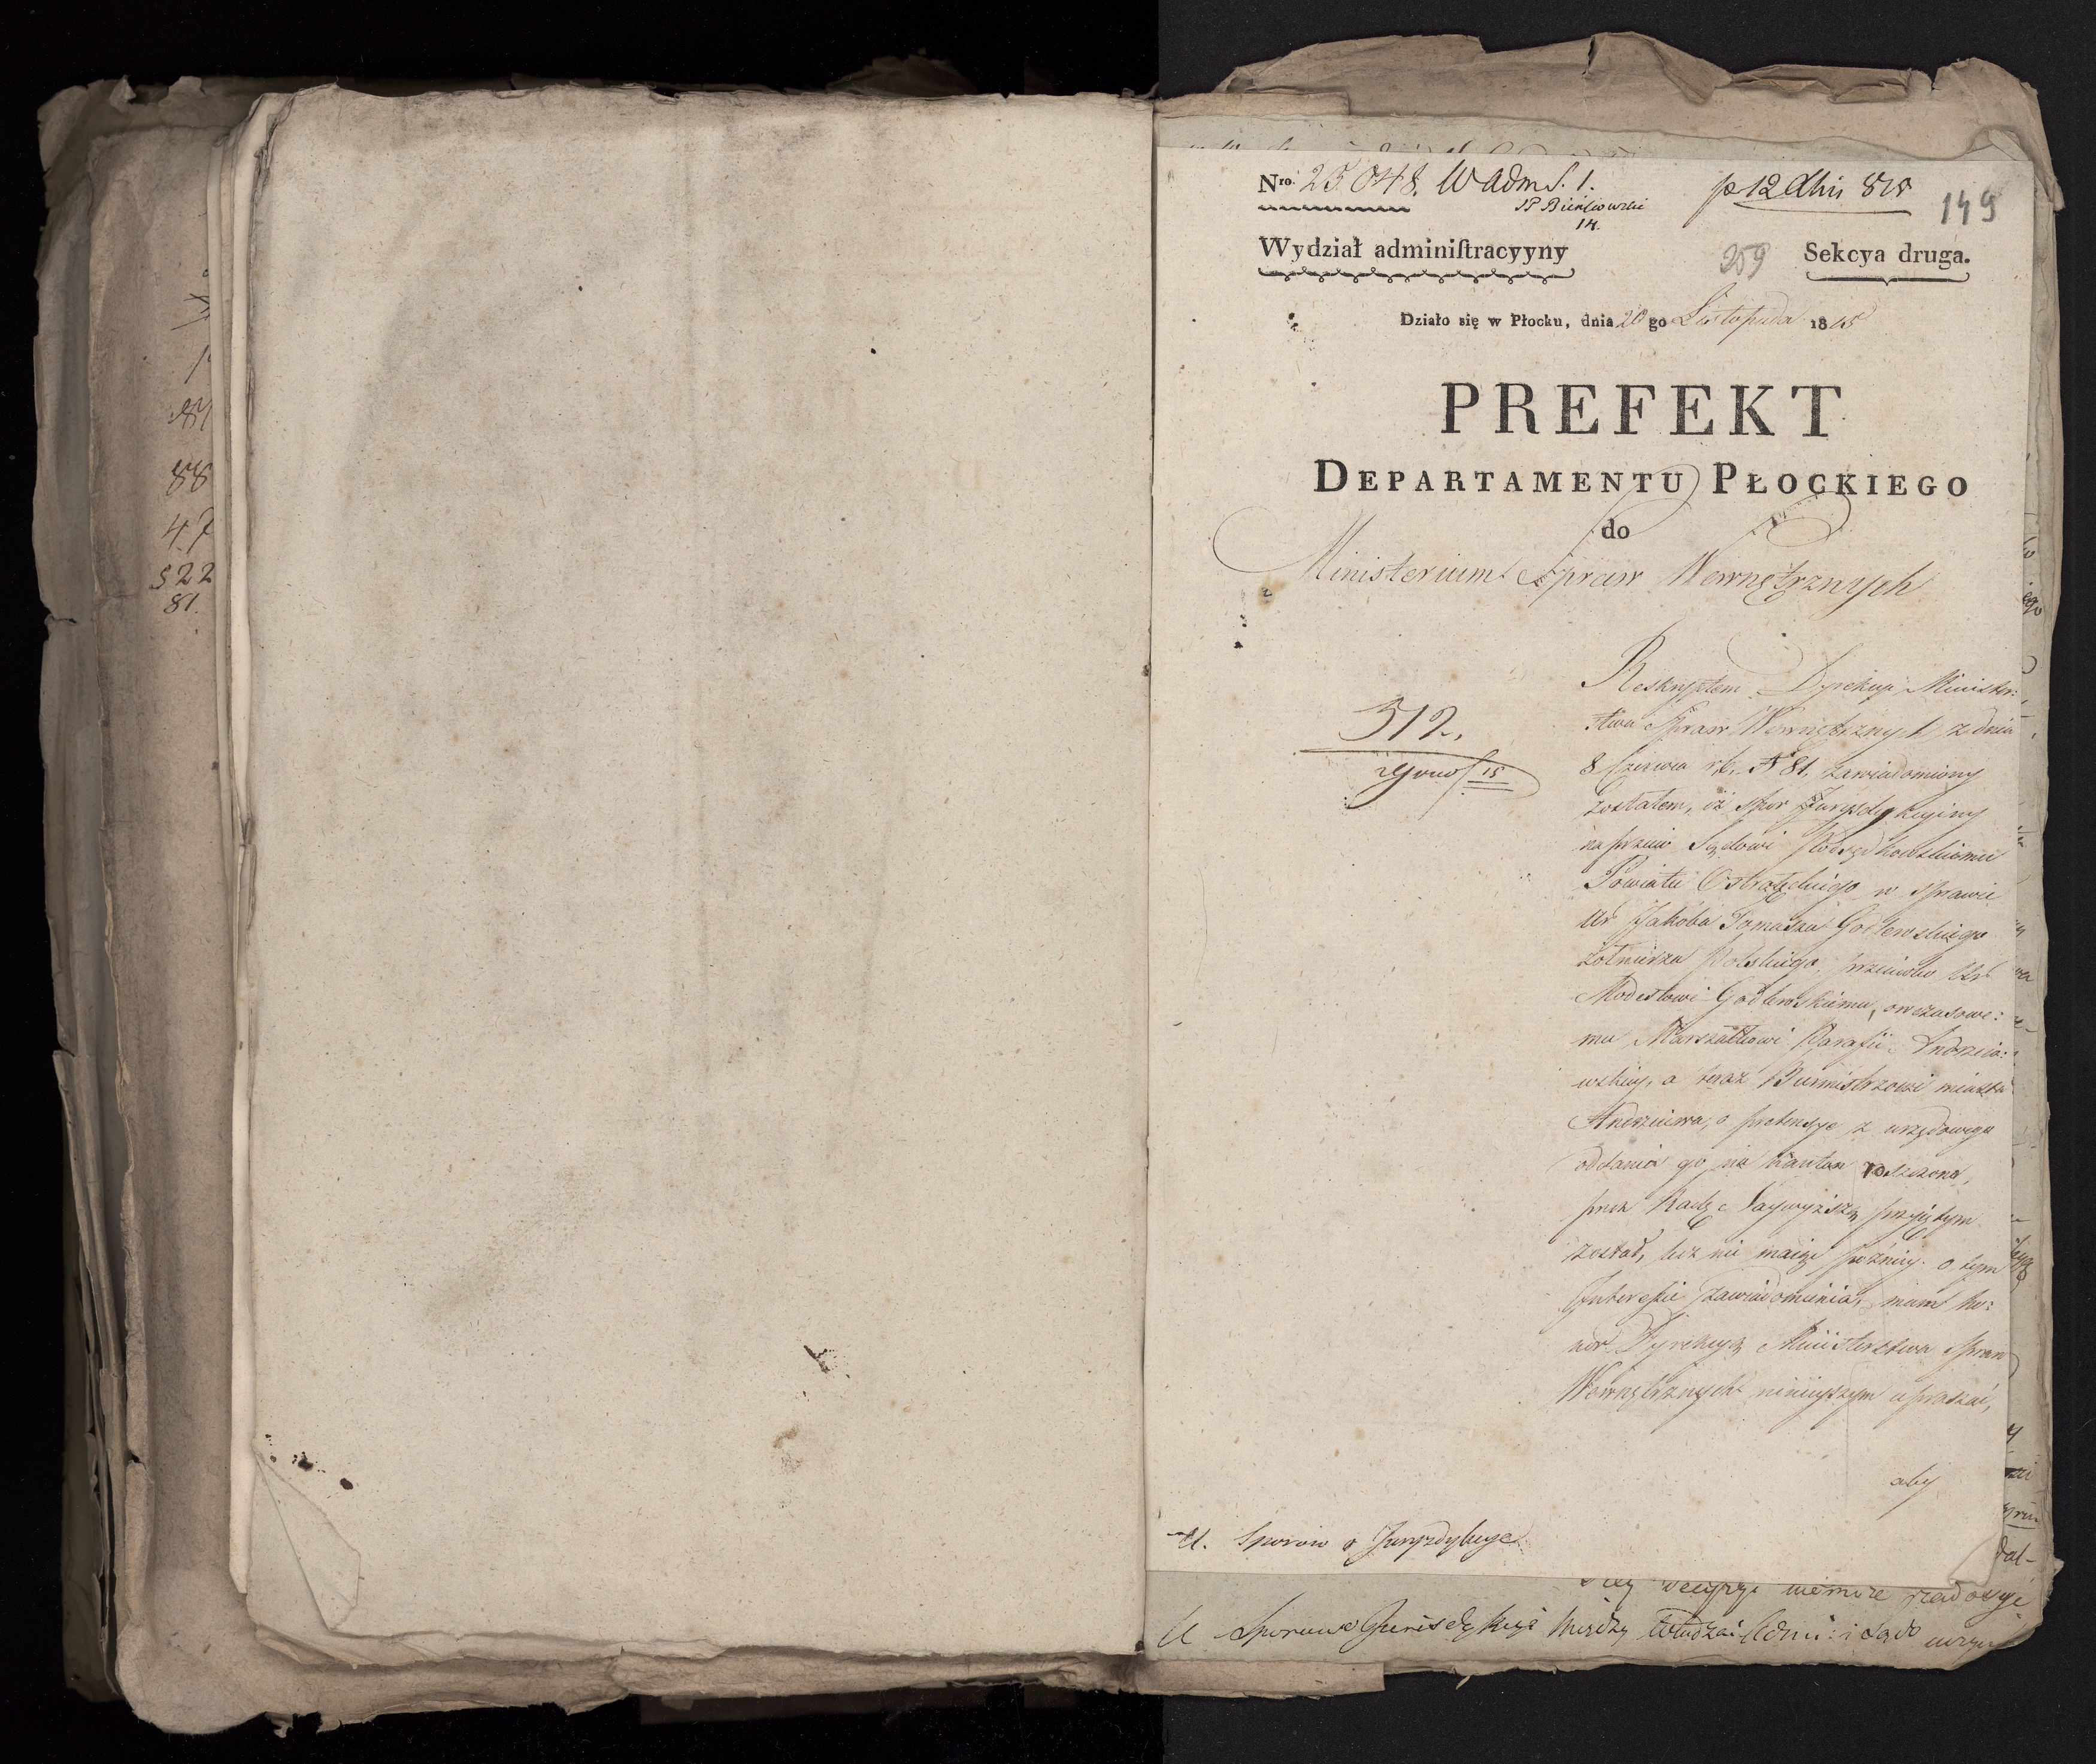 88
47
522
81.
Nro. 25.048. W Adm S. 1.
p 12 Xbris 815
149
14.
Wydział adminiſtracyyny
259
Sekcya druga.
Działo się w Płocku, dnia 20 go Listopada 1815
PREFEKT
DEPARTAMENTU PŁOCKIEGO
do
Ministerium Spraw Wewnętrznych
312.
15
Reskryptem Dyrekcyi Minister:
stwa Spraw Wewnętrznych z dnia
8 Czerwca r. b. N 81. zawiadomiony
zostałem, iż spor Juryzdykcyiny
naprzeciw Sądowi Podsędkowskiemu
Powiatu Ostrołęckiego w sprawie
Ur Jakoba Tomasza Godlewskiego
żołnierza Polskiego przeciwko Ur
Modestowi Godlewskiemu, owczasowe:
mu Marszałkowi Parafii Andrzeio:
wskiey, a teraz Burmistrzowi miasta
Andrzeiewa, o pretensye z urzędowego
oddania go na kanton roszczone,
przez Radę Naywyższą przyiętym
został, lecz nie maiąc poźniey o tym
Interesie zawiadomienia, mam ho:
nor Dyrekcyą Ministerstwa Spraw
Wewnętrznych ninieyszym upraszać,
aby
U. Sporow o Juryzdykcye
decyzyi nie może
U Sporow o Jurisdykcyi między władzai Admi: i Sądo